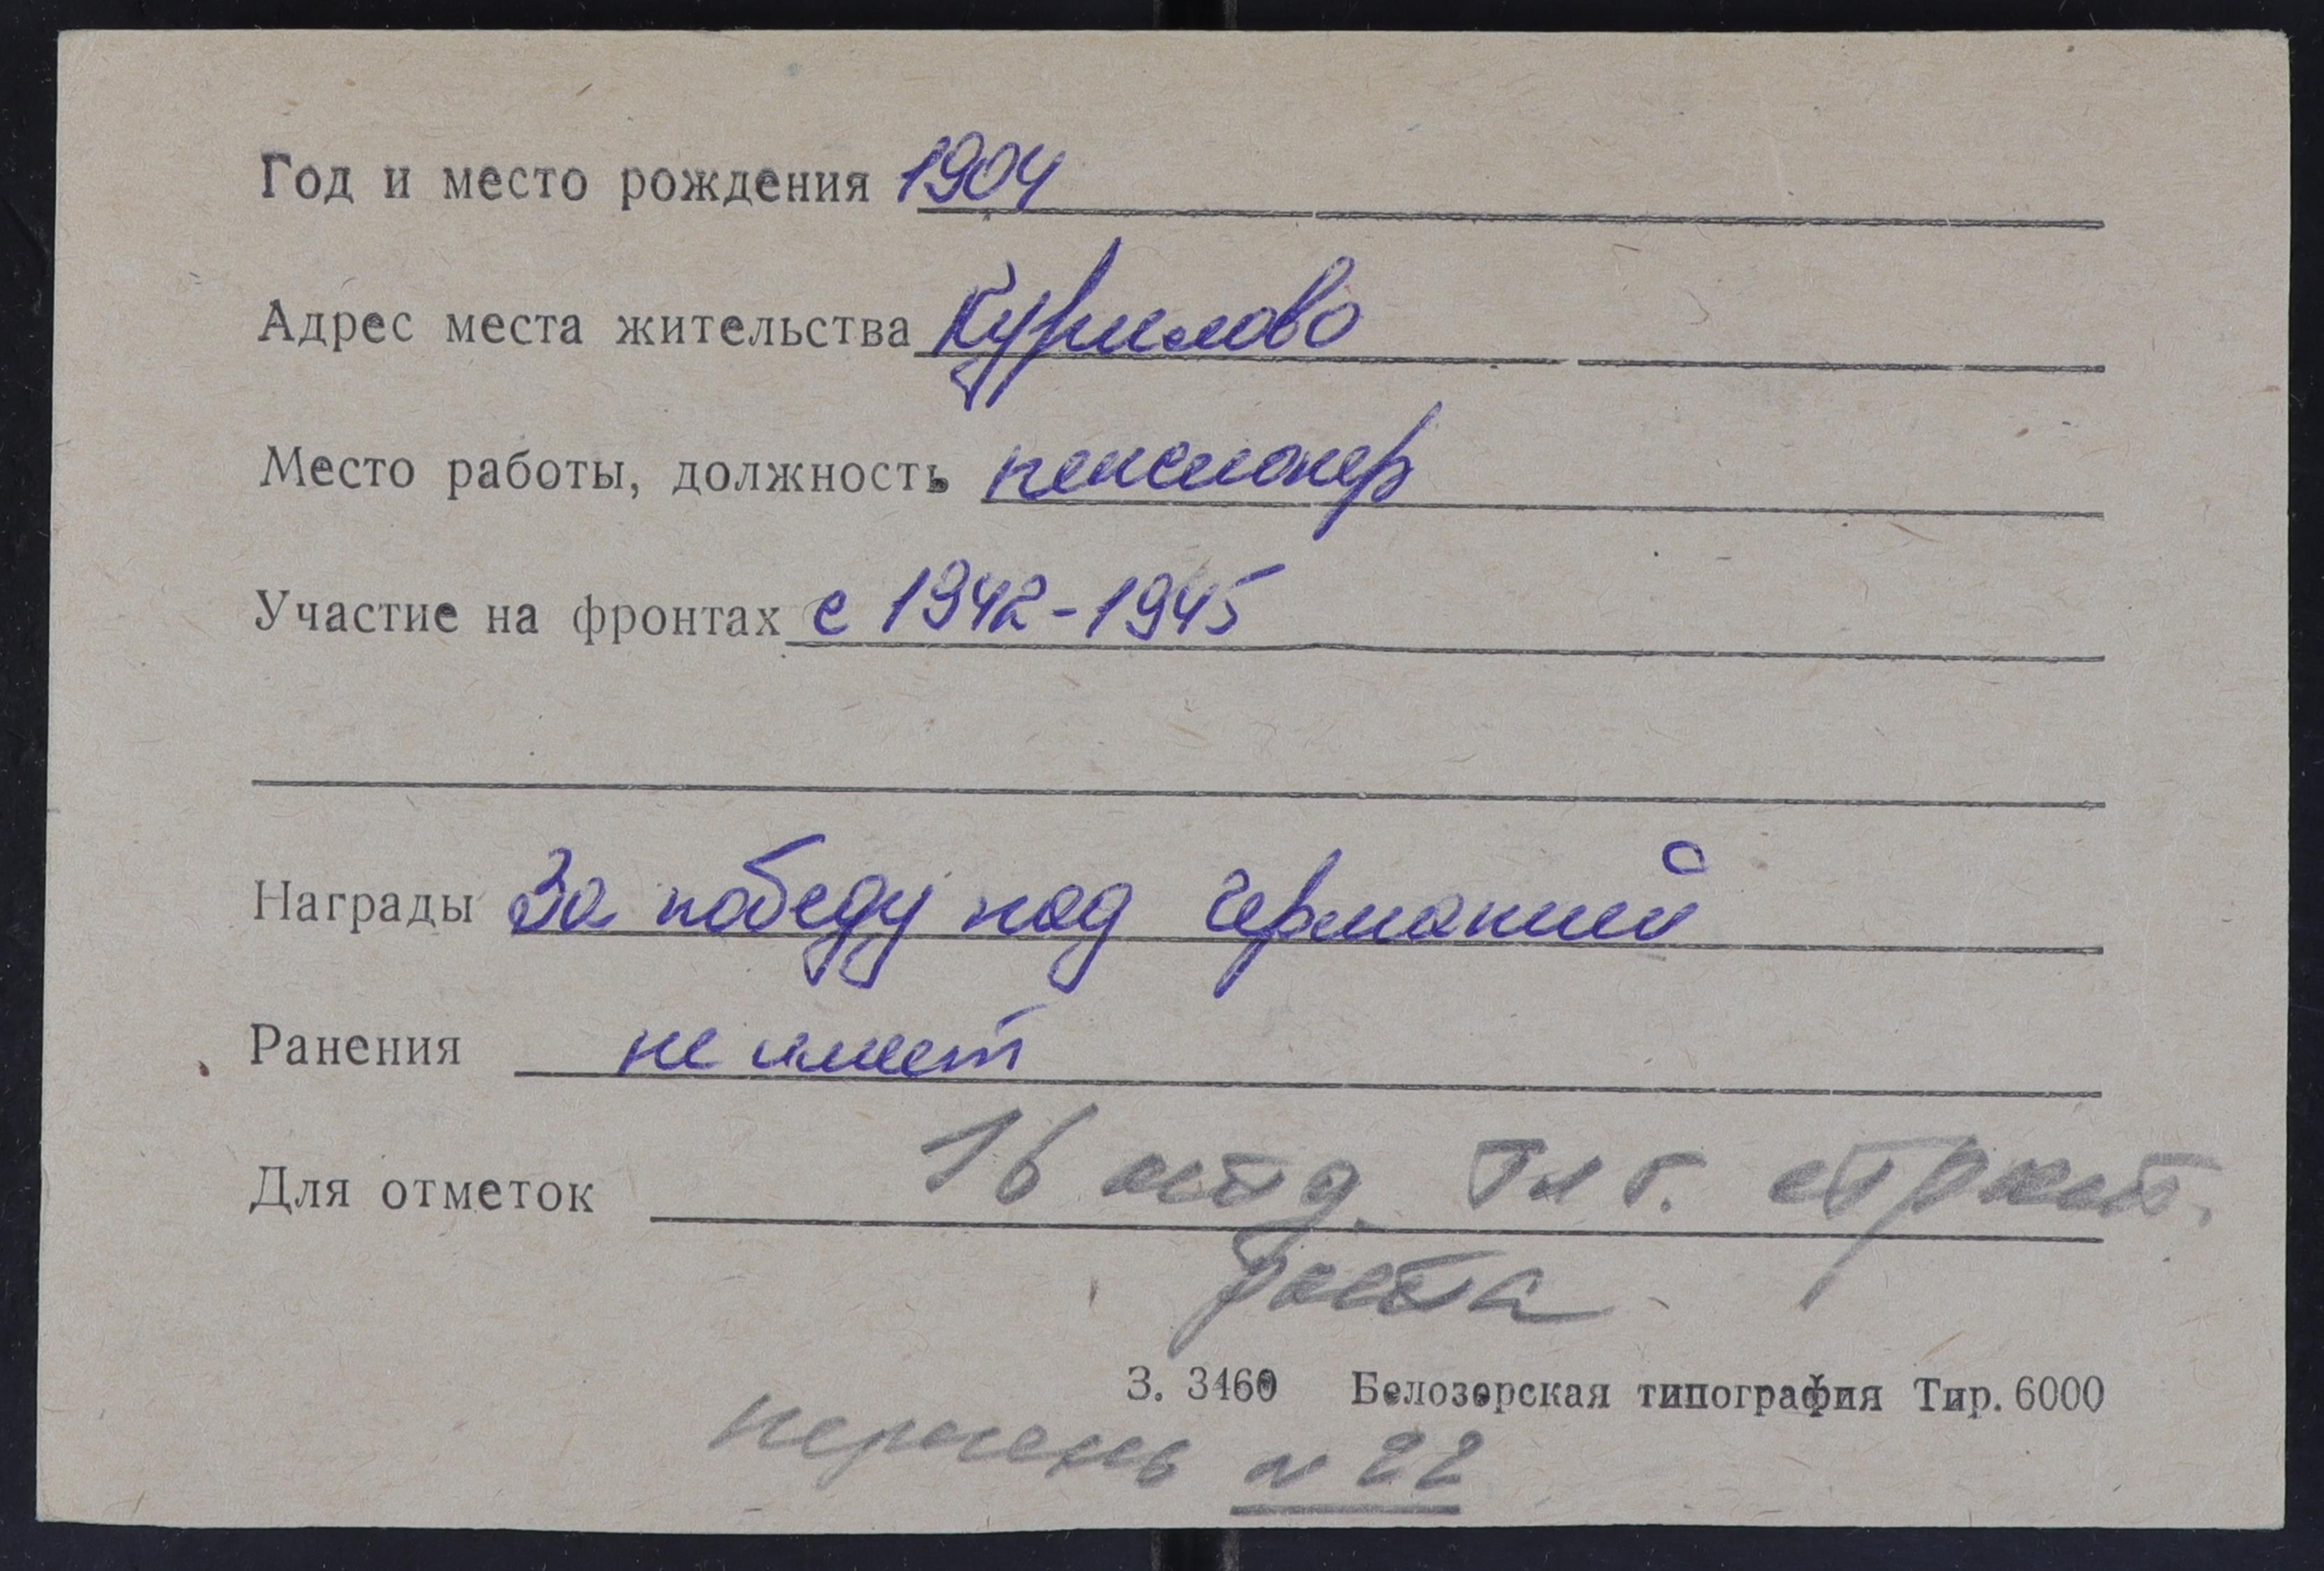 Год и место рождения 1904
Адрес места жительства Курилово
Место работы, должность пенсионер
Участие на фронтах с 1942-1945
Награды За победу над германией
Ранения не имеет
Для отметок 16
рота
З. 3460 Белозерская типография Тир. 6000
перечень № 22